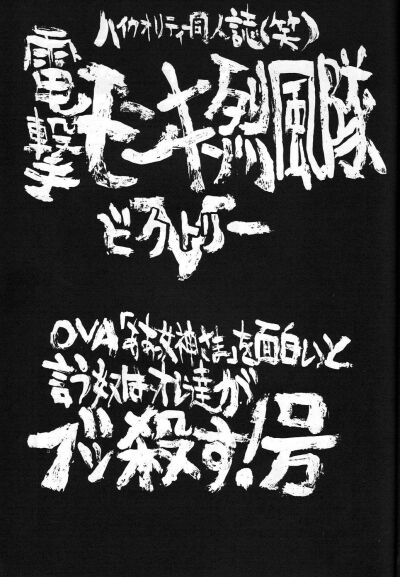 ハイクオリティー同人誌(笑)
電撃
モンキ烈風隊
ビクトリー
OVA「ああ女神さま」を面白いと
言う奴はオレ達が
ブッ殺す!号